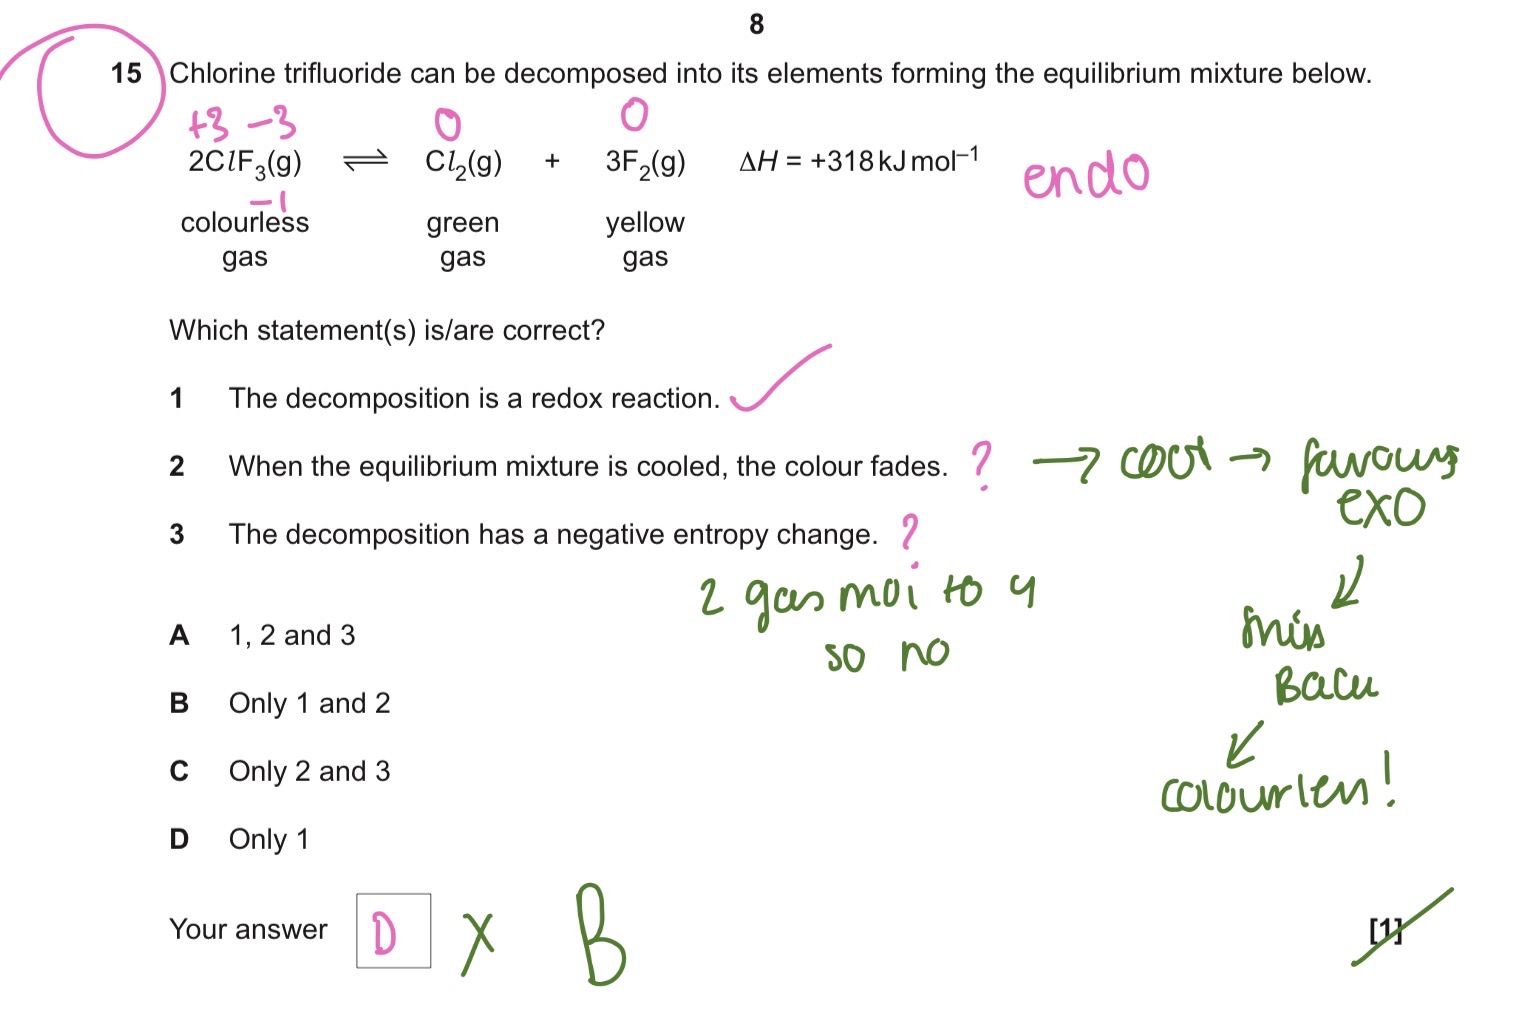 8
15 Chlorine trifluoride can be decomposed into its elements forming the equilibrium mixture below.
+3 −3 0 0
2ClF₃(g) ⇌ Cl₂(g) + 3F₂(g) ΔH = +318 kJ mol⁻¹ endo
−1
colourless green yellow
gas gas gas
Which statement(s) is/are correct?
1 The decomposition is a redox reaction. ✓
2 When the equilibrium mixture is cooled, the colour fades. ? → cool → favours
exo
3 The decomposition has a negative entropy change. ?
2 gas mol to 4
so no
↙
↙
colourless!
A 1, 2 and 3
B Only 1 and 2
C Only 2 and 3
D Only 1
Your answer D X B [1]